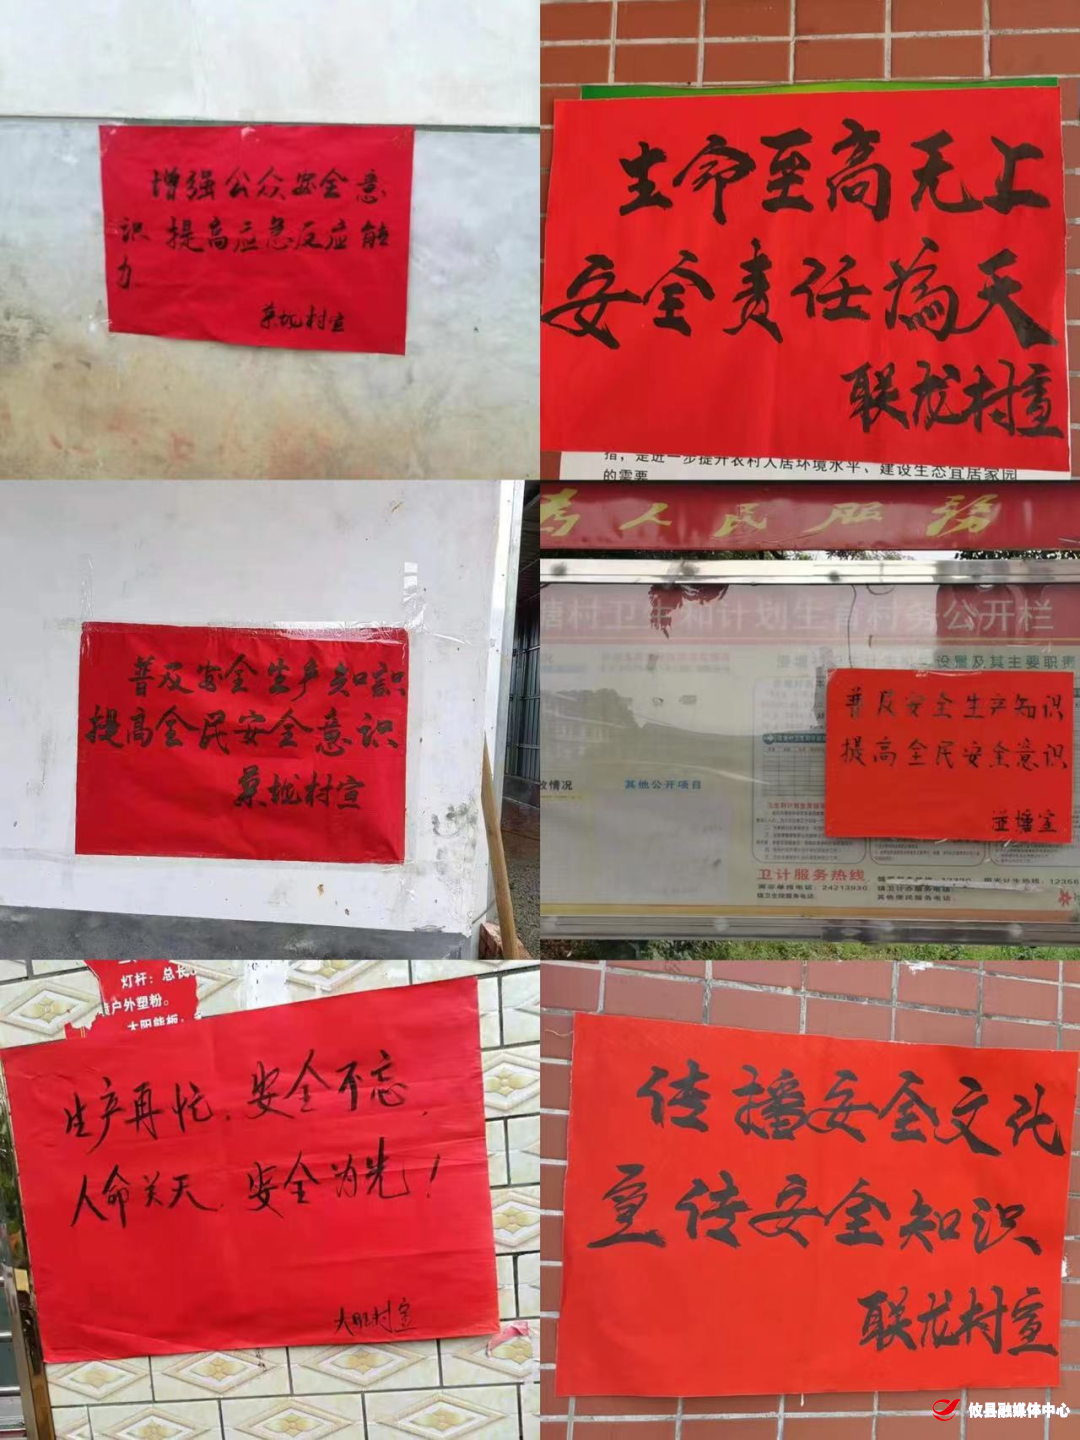 增强公众安全意
识 提高应急反应能
力
村宣
生命至高无上
安全责任為天
联龙村宣
指，是进一步提升农村人居环境水平、建设生态宜居家园
的需要
普及安全生产知识
提高全民安全意识
村宣
为人民服务
塘村卫生和计划生育村务公开栏
设置及其主要职责
普及安全生产知识
提高全民安全意识
塘宣
情况
其他公开项目
卫计服务热线
24213930
灯杆：总长
户外塑粉。
太阳能板
生产再忙，安全不忘，
人命关天，安全为先！
村宣
传播安全文化
宣传安全知识
联龙村宣
攸县融媒体中心